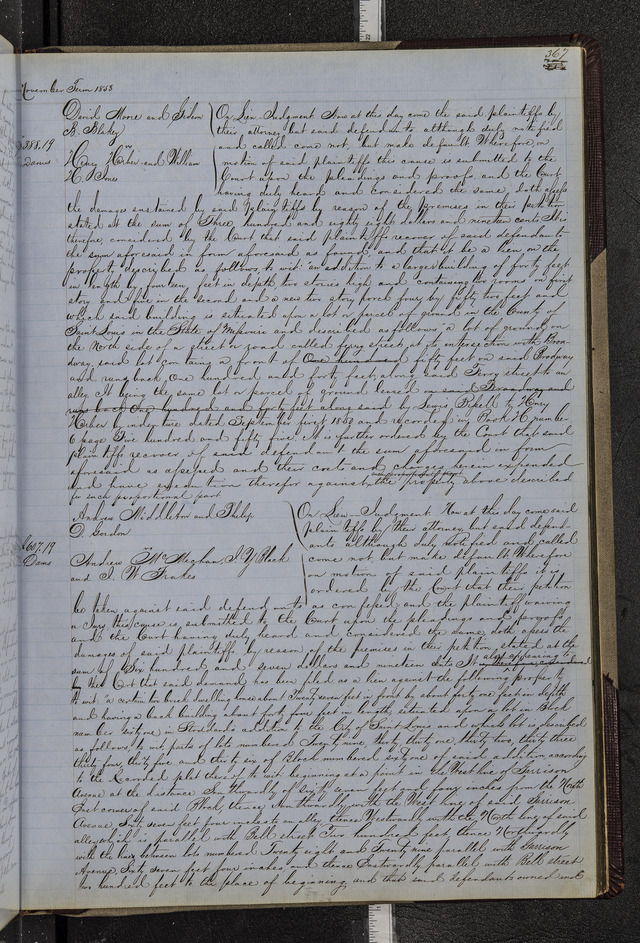 367
November Term 1853
David Moore and Gideon
B. Blakey
vs
Henry Hisher and William
H. Jones
$388.19
Dams
On Lien Judgment Now at this day come the said plaintiffs by
their attorney but said defendants although duly notified
and called come not, but make default. Wherefore on
motion of said plaintiffs this cause is submitted to the
Court upon the pleadings and proofs, and the Court
having duly heard and considered the same doth assess
the damages sustained by said plaintiffs by reason of the premises in their petition
stated at the sum of Three hundred and eighty eight dollars and nineteen cents It is
therefore considered by the Court that said plaintiffs recover of said defendants
the sum aforesaid in form aforesaid as found, and that it be a lien on the
property described as follows to wit: an addition to a larger building of forty feet
in length by fourteen feet in depth, two stories high and containing two rooms on first
story and five in the second and a new two story porch four by fifty two feet and
which said building is situated upon a lot or parcel of ground in the County of
Saint Louis in the State of Missouri and described as follows: a lot of ground on
the North side of a street or road called ferry street, at its intersection with Broad-
way, said lot containing a front of One hundred fifty feet on said Broadway
and runs back One hundred and forty feet, along said Ferry street to an
alley. It being the same lot or parcel of ground leased on said Broadway and
runs back One hundred and forty feet along said by Lewis Bissell to Henry
Hisher by indenture dated September first 1853 and recorded in Book H number
6 page Five hundred and fifty five. It is further ordered by the Court that said
plaintiffs recover of said defendants the sum aforesaid in form
aforesaid as assessed and their costs and charges herein expended
and have execution therefor against the property above described
for such proportional part
Andrew Middleton and Philip
D. Gordon
vs
Andrew McMeghan, J. Y. Black
and J. W. Frakes
$607.19
Dams
On Lien Judgment Now at this day come said
plaintiffs by their attorney, but said defend-
ants although duly notified and called
come not, but make default. Wherefore
on motion of said plaintiffs it is
ordered by the Court that their petition
be taken against said defendants as confessed and the plaintiffs waiving
a Jury, this cause is submitted to the Court upon the pleadings and proofs
and the Court having duly heard and considered the same doth assess the
damages of said plaintiffs by reason of the premises in their petition stated at the
sum of Six hundred and seven dollars and nineteen cents It also appearing to
by the Court that said demand has been filed as a lien against the following property
to wit: a certain two brick dwelling house about Twenty seven feet in front by about forty one feet in depth
and having a back building about forty four feet in length, extended upon a lot in Block
number sixty one in Stoddard's addition to the City of Saint Louis and which lot is described
as follows to wit: parts of lots numbered Twenty nine, thirty, thirty one, thirty two, thirty three
thirty four, thirty five and thirty six of Block numbered sixty one of said addition according
to the recorded plat thereof to wit: beginning at a point in the West line of Garrison
Avenue at the distance Southwardly of Sixty seven feet and four inches from the North
East corner of said Block, thence Southwardly with the West line of said Garrison
Avenue Sixty seven feet four inches to an alley, thence Westwardly with the North line of said
alley which is parallel with Bell street Two hundred feet, thence Northwardly
with the line between lots numbered Twenty eight and Twenty nine parallel with Garrison
Avenue Sixty seven feet four inches and thence Eastwardly parallel with Bell street
two hundred feet to the place of beginning, and that said defendants owned and